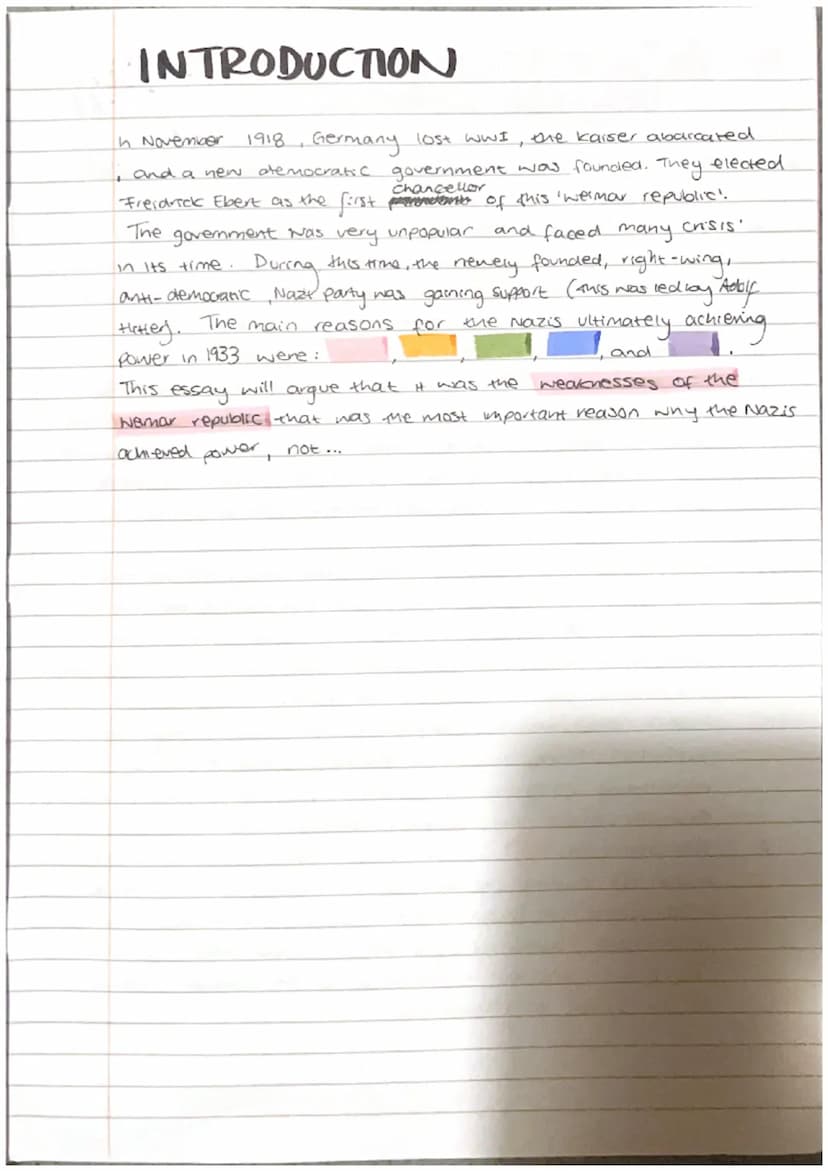 INTRODUCTION
In November 1918, Germany lost WWI, the Kaiser abdicated
, and a new democratic government was founded. They elected
chancellor
Freidrick Ebert as the first of this 'weimar republic'.
The government was very unpopular and faced many crisis'
in its time. During this time, the newely founded, right-wing,
anti-democratic, Nazi party was gaining support (this was led by Adolf
Hitler). The main reasons for the Nazis ultimately achieving
power in 1933 were: , , , , and .
This essay will argue that it was the weaknesses of the
Weimar republic that was the most important reason why the Nazis
achieved power, not...